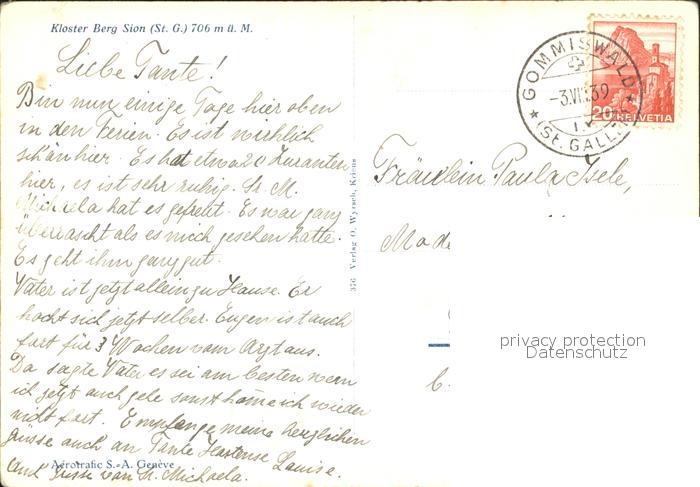 Kloster Berg Sion (St. G.) 706 m ü. M.
Liebe Tante!
Bin nun einige Tage hier oben
in den Ferien. Es ist wirklich
schön hier. Es hat etwa 20 Kuranten
hier, es ist sehr ruhig. Sr. M.
Michaela hat es gefreut. Es war ganz
überrascht als es mich gesehen hatte.
Es geht ihm ganz gut.
Vater ist jetzt allein zu Hause. Er
kocht sich jetzt selber. Eugen ist auch
fort für 3 Wochen vom Arzt aus.
Da sagte Vater es sei am besten wenn
ich jetzt auch gehe sonst komme ich wieder
nicht fort. Empfange meine herzlichen
Grüsse auch an Tante Hortense Louise.
und Grüsse von Sr. Michaela.
Aérotrafic S.-A. Genève
376 Verlag O. Wyrsch, Kriens
GOMMISWALD
-3.VII.39
(ST. GALLEN)
20 HELVETIA
Fräulein Paula Isele,
Mode
privacy protection
Datenschutz